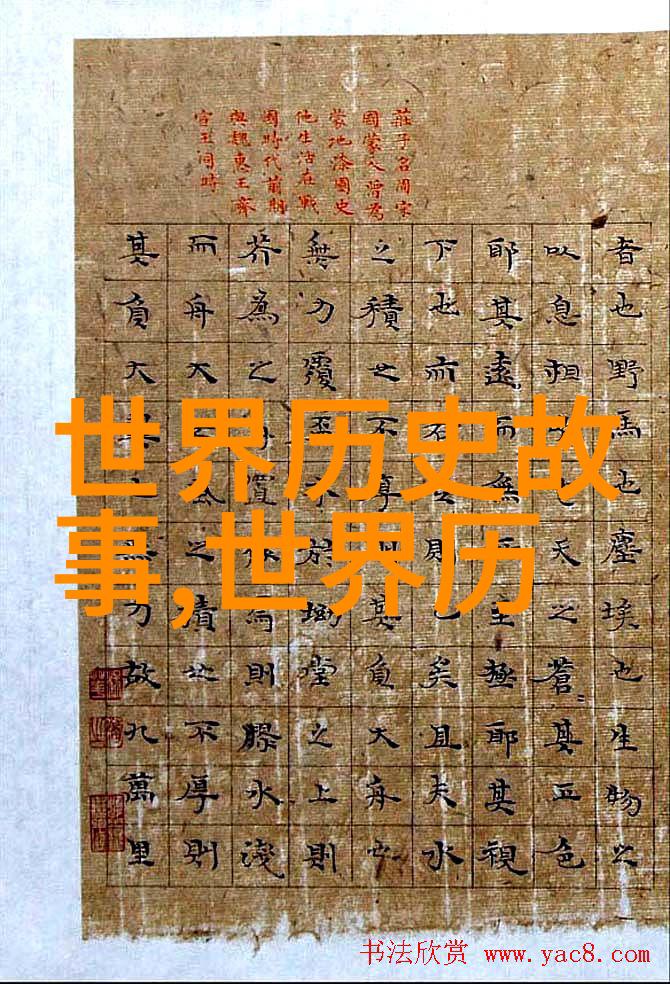 莊子名周宋
國蒙人曾為
蒙地漆園史
他生活在戰
國時代前期
與魏惠王齊
宣王同時
者也野馬也塵埃也生物之
以息相吹也天之蒼其正色
耶其遠而無所至極耶其視
下也亦若是則已矣且夫水
之積也不厚則其負大舟也
無力覆盃水於坳堂之上則
芥為之舟置杯焉則膠水淺
而舟大也風之積也不厚則
其負大翼也無力故九萬里
世界历史故
事,世界历
书法欣赏 www.yac8.com